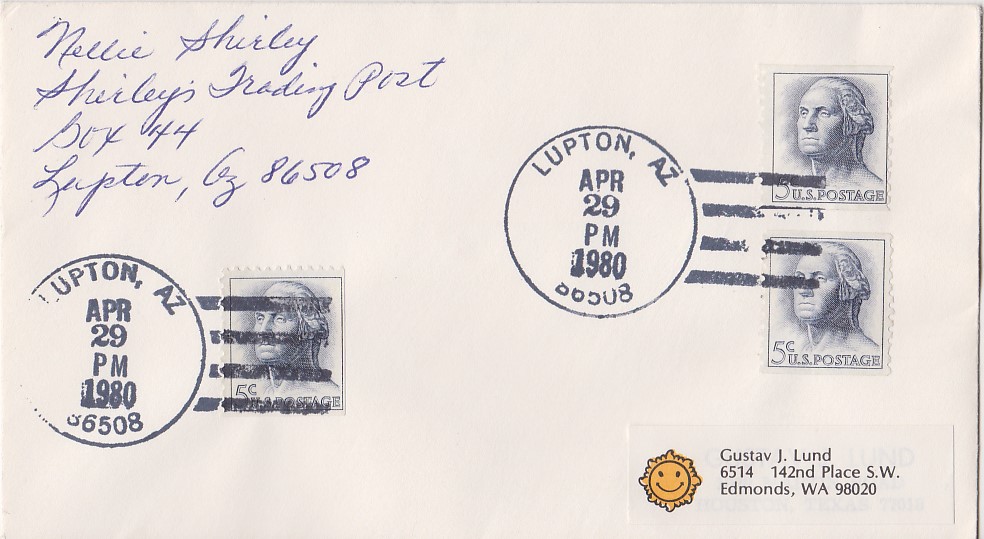 Nellie Shirley
Shirley's Trading Post
Box 44
Lupton, Az 86508
LUPTON, AZ
APR
29
PM
1980
86508
5 U.S. POSTAGE
5c U.S. POSTAGE
LUPTON, AZ
APR
29
PM
1980
86508
5c U.S. POSTAGE
Gustav J. Lund
6514 142nd Place S.W.
Edmonds, WA 98020
LUND
HOUSTON, TEXAS